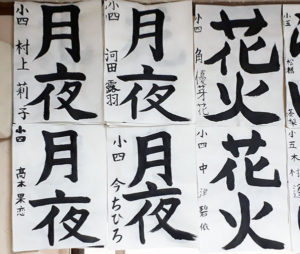 月夜
小四 村上 莉子
月夜
小四 河田 露羽
花火
小四 角 優芽花
小五 松
月夜
小四 高木 果恋
月夜
小四 今ちひろ
花火
小四 中 津 碧依
小五 木村